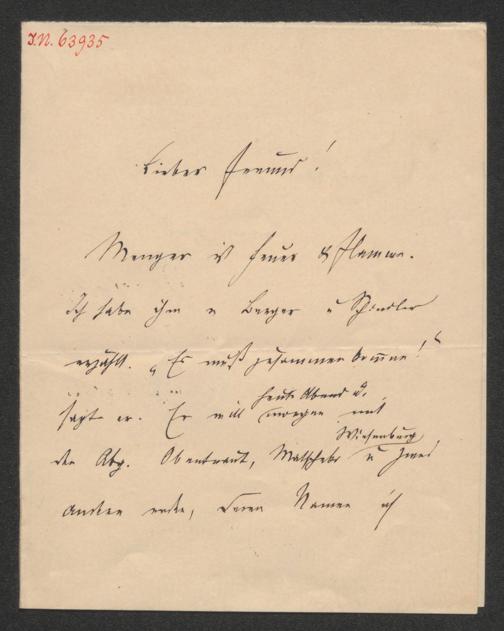 I.N. 63935
Lieber Freund!
Menger ist Feuer & Flamme.
Ich habe ihm v Berger u Spindler
erzählt. „Es muß zusammenkommen!“
sagte er. Er will heute Abend u.
morgen mit
den Abg. Obentraut, Matscheko Wiesenburg u zwei
andren reden, deren Namen ich